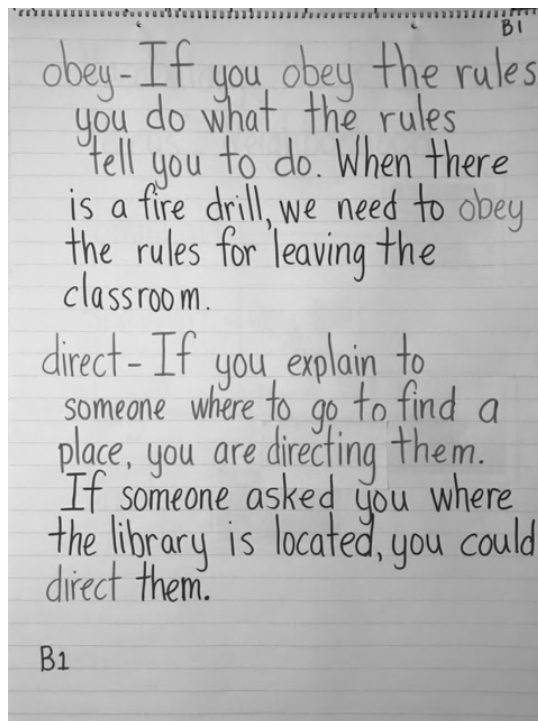 B1
obey - If you obey the rules
you do what the rules
tell you to do. When there
is a fire drill, we need to obey
the rules for leaving the
classroom.
direct - If you explain to
someone where to go to find a
place, you are directing them.
If someone asked you where
the library is located, you could
direct them.
B1